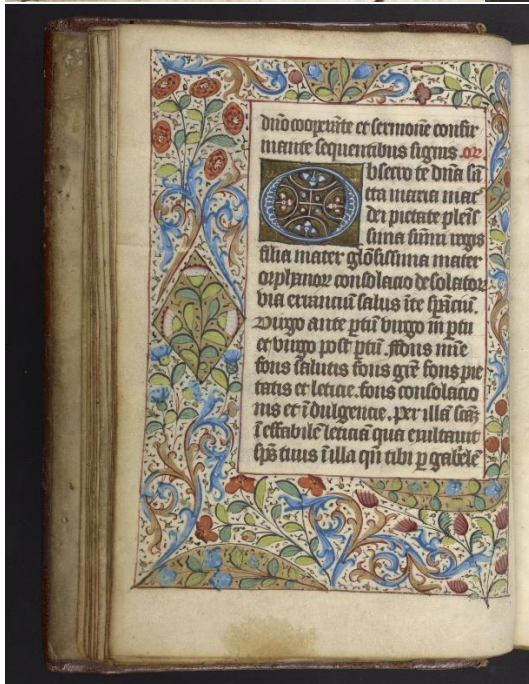 dn̄o cooperāte et sermonē confir
mante sequentibus signis. or̄.
Obsecro te dn̄a sā
cta maria mat̄
dei pietate pleīs
sima sūmi regis
filia mater glōsissima mater
orphanoꝝ consolacio desolatoꝝ
via erranciū salus ī te sꝑāciū.
Virgo ante ptū virgo in ptū
et virgo post ptū. ffons mīe
fons salutis fons grē fons pie
tatis et leticie. fons consolacio
nis et īdulgencie. per illā scāꝫ
īeffabilē leticiā qua exultauit
sp̄s tuus ī illa qn̄ tibi ꝑ gabⁱelē